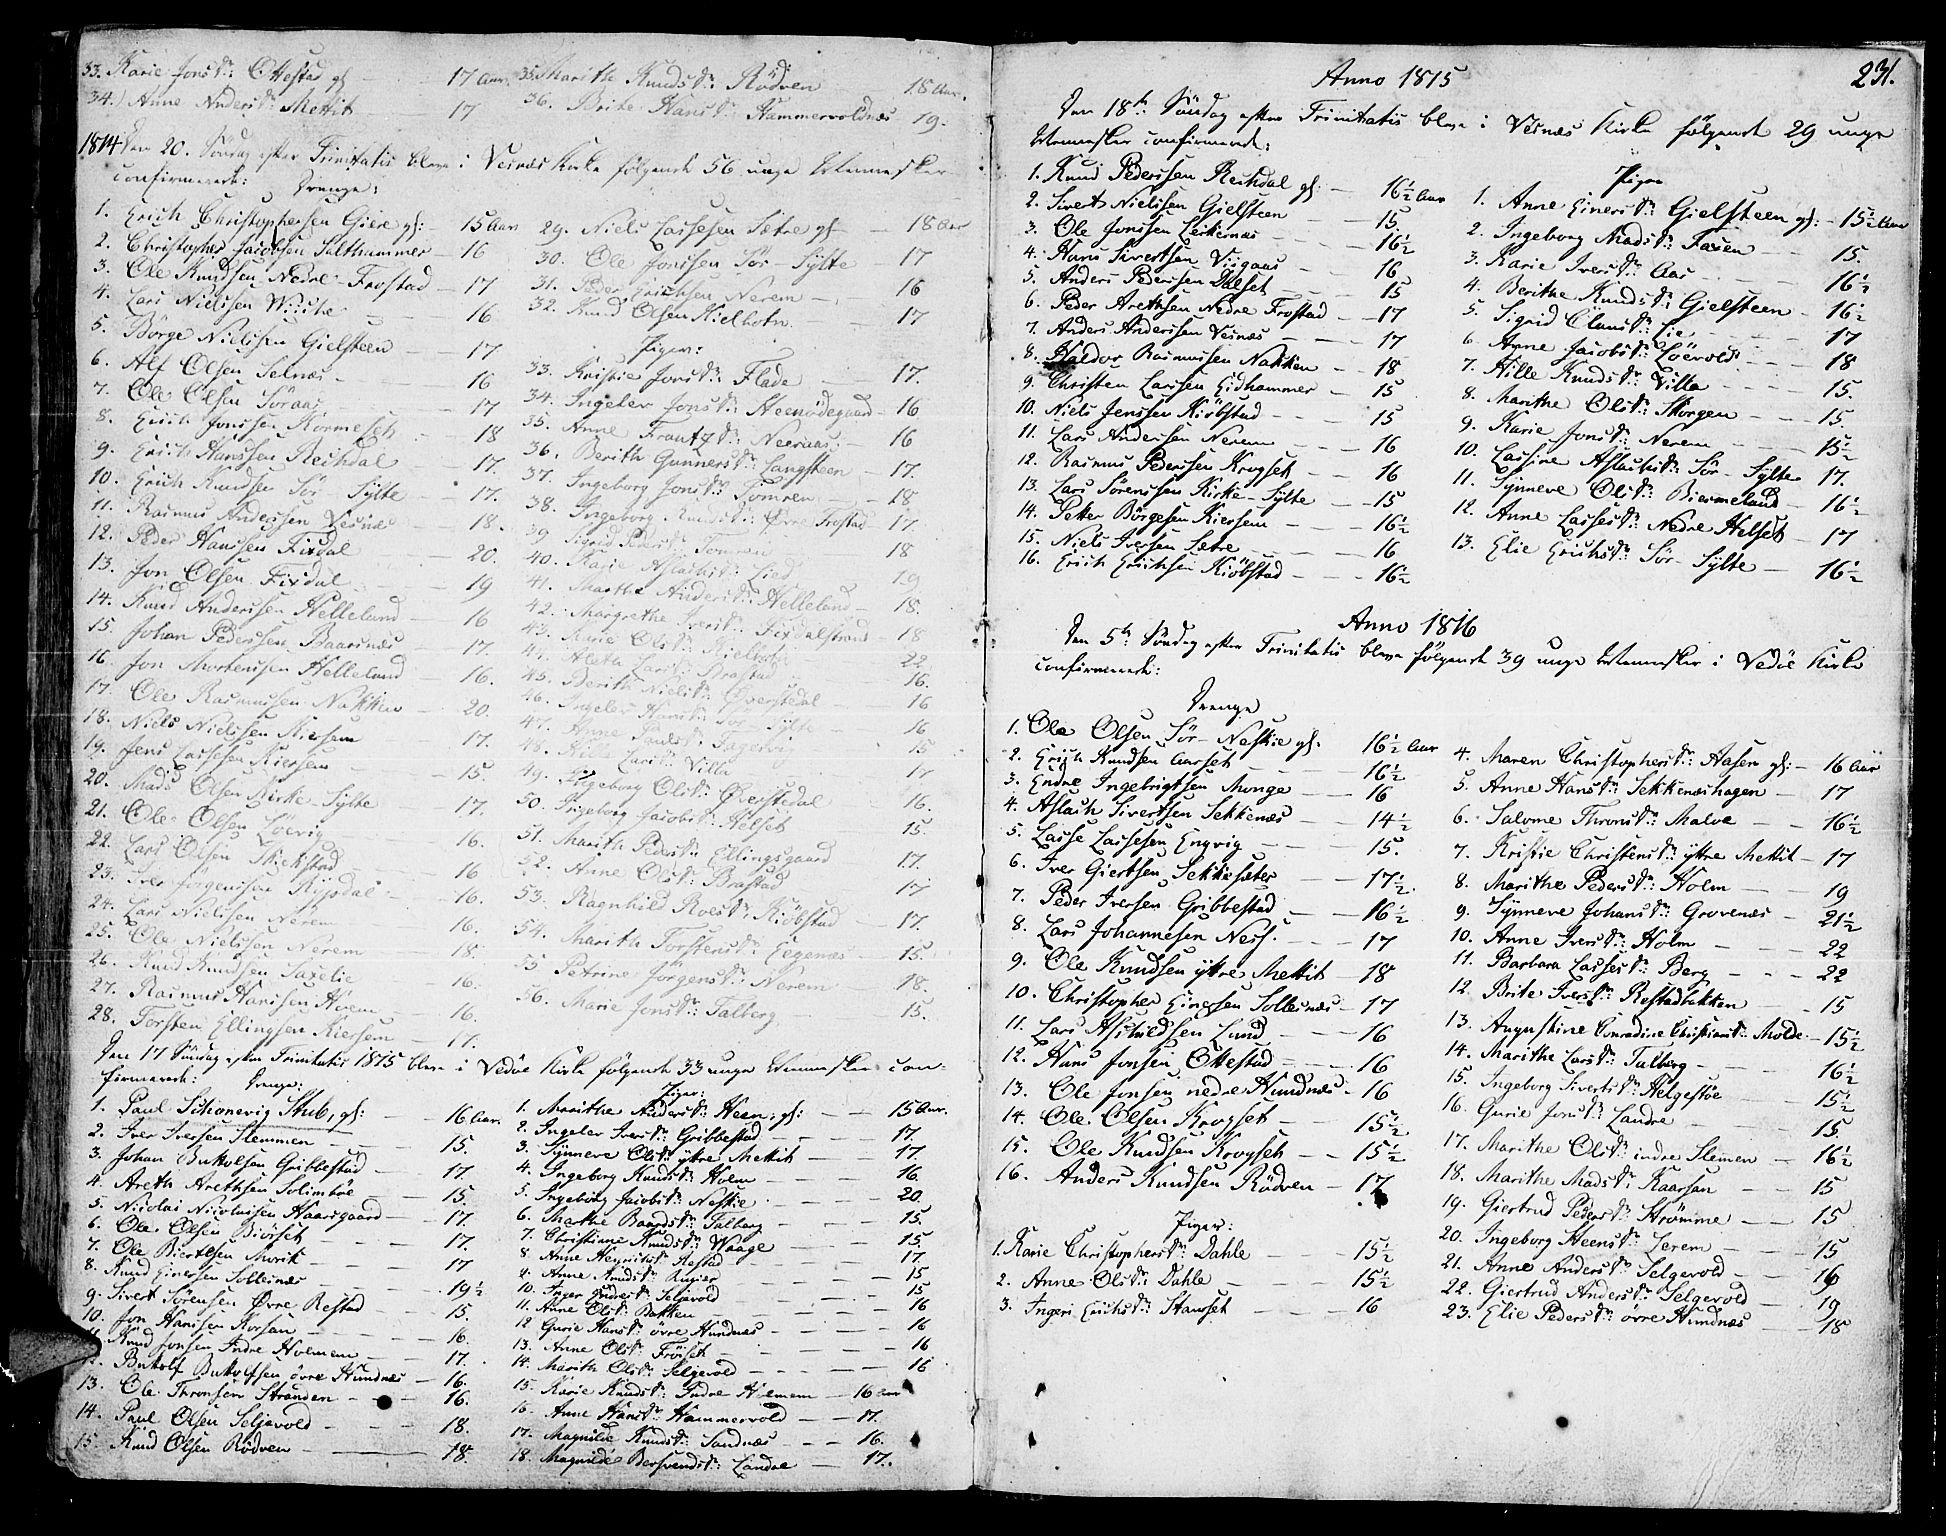 33. Karie Jonsdr: Ottestad gl: 17 Aar.
34.) Anne Andersdr: Mettit 17
35. Marithe Knudsdr: Rödven 18 Aar.
36. Brite Hansdr: Hammervoldnæs 19.
1814 Den 20. Söndag efter Trinitatis bleve i Vesnæs Kirke fölgende 56 unge Mennesker
confirmerede: Drenge:
1. Erich Christophersen Giere gl: 15 Aar
2. Christopher Jacobsen Salthammer 16
3. Ole Knudsen Nedre-Frostad 17
4. Lars Nielsen Wiiche 16
5. Börge Nielsen Gielsteen 17
6. Alf Olsen Selnæs 16
7. Ole Olsen Söraas 17
8. Erich Jonssen Kormeseth 18
9. Erich Hanssen Rechdal 17.
10. Erich Knudsen Sör-Sylte 17.
11. Rasmus Anderssen Vesnæs 18.
12. Peder Hanssen Fixdal 20.
13. Jon Olsen Fixdal 19
14. Knud Anderssen Helleland 16
15. Johan Pederssen Baarsnæs 17.
16. Jon Mortenssen Helleland 16.
17. Ole Rasmussen Nakken 20.
18. Niels Nielssen Kiersem 17.
19. Jens Lassesen Kiersem 15.
20. Mads Olsen Kirke-Sylte 17.
21. Ole Olsen Löevig 16.
22. Lars Olsen 16
23. Iver Jörgenssen 16.
24. Lars Nielssen Nerem 16.
25. Ole Nielssen Nerem 18.
26. Knud Knudsen Saxelie 16.
27. Rasmus Hanssen Hovem 16.
28. Torsten Ellingsen Kiersem 17.
29. Niels Lassesen Sætre gl: 18 Aar
30. Ole Jonssen Sör-Sylte 17
31. Peder Erichsen Nerem 16
32. Knud Olsen Kielbotn 17
Piger:
33. Kristie Jonsdr: Flade 17.
34. Ingeler Jonsdr: Heenödegaard 16
35. Anne Frantzdr: Neeraas 16
36. Berith Gunnersdr: Langsteen 17.
37. Ingeborg Jonsdr: Tomren 18
38. Ingeborg Knudsdr: Övre Frostad 17.
39. Sigrid Pedersdr: Tomren 18
40. Karie Aslachsdr: Lied 19
41. Marthe Andersdr: Helleland 18.
42. Margrethe Iversdr: Fixdalstrand 18
43. Karie Olsdr: Kielbotn 22.
44. Aleta Larsdr: Frostad 16.
45. Berith Nielsdr: Överstedal 16
46. Ingeler Hansdr: Sör-Sylte 16
47. Anne Paulsdr: Fagervig 15
48. Hille Larsdr: Villa 17
49. Ingeborg Olsdr: Överstedal 16.
50. Ingeborg Jacobsdr: Helset 15.
51. Marith Pedersdr: Ellingsgaard 17.
52. Anne Olsdr: Brastad 17
53. Ragnhild Roesdr: Kiöbstad 17.
54. Marith Torstensdr: Eegenæs 15.
55. Petrine Jörgensdr: Nerem 18.
56. Marie Jonsdr: Talberg 15.
Den 17 Söndag efter Trinitatis 1815 bleve i Vedöe Kirke fölgende 33 unge Mennesker con-
firmerede: Drenge:
1. Paul Schonevig Stub, gl: 16 Aar.
2. Iver Iversen Slemmen 15.
3. Johan Bukolsen Gribbestad 17.
4. Areth Arethsen Solimböe 15.
5. Nicolai Nicolaisen Haarsgaard 17.
6. Ole Olsen Biörset 17.
7. Ole Biertelsen Morit 17
8. Knud Einersen Solleinæs 19½
9. Sivert Sörensen Övre Restad 15.
10. Jon Hanssen Korsan 16.
11. Knud Jonsen Indre Holmem 17.
12. Bukolf Bukolfsen övre Hundnæs 16.
13. Ole Thronsen Stranden 16.
14. Paul Olsen Seljevold 18.
15. Knud Olsen Rödven 18.
Piger:
1. Marithe Andersdr: Heen, gl: 15 Aar.
2. Ingeler Iversdr: Gribbestad 17.
3. Synneve Olsdr: ytre Mettit 17.
4. Ingeborg Knudsdr: Holm 16.
5. Ingeborg Jacobsdr: Neskie 20.
6. Marthe Baardsdr: Talberg 15.
7. Christiane Knudsdr: Waage 15.
8. Anne Heyrichsdr: Restad 17
9. Anne Knudsdr: 15
10. Inger Endresdr: Seljevold 15
11. Anne Olsdr: Bakken 16
12 Gurie Hansdr: övre Hundnæs 16
13. Anne Olsdr: Fröiset 16
14. Marith Olsdr: Seljevold 16
15. Karie Knudsdr: Indre Holmem 16 Aar
16. Anne Hansdr: Hammervold 17.
17. Magnilde Knudsdr: Sandnæs 16.
18. Magnilde Bersvendsdr: Landre 17.
231.
Anno 1815
Den 18de Söndag efter Trinitatis bleve i Vesnæs Kirke fölgende 29 unge
Mennesker confirmerede:
1. Knud Pederssen Rechdal gl: 16½ Aar
2. Sivert Nielssen Gielsteen 15.
3. Ole Jonssen Leekernæs 16½
4. Hans Sivertsen Viigaas 16
5. Anders Pederssen Dalset 15
6. Peder Arethsen Nedre Frostad 17
7. Anders Anderssen Vesnæs 17
8. Haldor Rasmussen Nakken 18
9. Christen Larssen Eidhammer 15
10. Niels Jenssen Kiöbstad 15
11. Lars Andersen Nerem 16
12. Rasmus Pederssen Krogset 16
13. Lars Sörenssen Kirke-Sylte 15
14. Petter Börgesen Kiersem 16½
15. Niels Iversen Sætre 16
16. Erich Erichsen Kiöbstad 16½
Piger
1. Anne Einersdr: Gielsteen gl: 15½ Aar
2. Ingeborg Madsdr: Faxen 15.
3. Karie Iversdr: Aas 16½
4. Berithe Knudsdr: Gielsteen 16½
5. Sigrid Clausdr: Lie 17
6. Anne Jacobsdr: Löevold 18
7. Hille Knudsdr: Villa 15.
8. Marithe Olsdr: Skorgen 15
9. Karie Jonsdr: Nerem 15½
10. Lassine Aslachsdr: Sör-Sylte 17.
11. Synneve Olsdr: Biermeland 16½
12. Anne Lassesdr: Nedre Helset 17
13. Elie Erichsdr: Sör-Sylte 16½
Anno 1816
Den 5te Söndag efter Trinitatis bleve fölgende 39 unge Mennesker i Vedöe Kirke
confirmerede:
Drenge
1. Ole Olsen Sör-Neskie gl: 16½ Aar
2. Erich Knudsen Aarset 16½
3. Endre Ingebrigtsen Monge 16
4. Aslach Sivertsen Sekkenæs 14½
5. Lasse Lassesen Engvig 15.
6. Iver Giertsen Sekkesæter 17½
7. Peder Iversen Gribbestad 16½
8. Lars Johannesen Ness. 17
9. Ole Knudsen ytre Mettit 18
10. Christopher Einersen Solleinæs 17
11. Lars Aschildsen Lund 16
12. Hans Jonsen Ottestad 16
13. Ole Jonsen nedre Hundnæs 16
14. Ole Olsen Krogset 15½
15. Ole Knudsen Krogset 15½
16. Anders Knudsen Rödven 17
Piger:
1. Karie Christophersdr: Dahle 15½
2. Anne Olsdr: Dahle 15½
3. Ingeri Erichsdr: Stavset 16
4. Maren Christophersdr: Aasen gl: 16 Aar
5. Anne Hansdr: Sekkenæshagen 17
6. Salome Thronsdr: Malve 16½
7. Kristie Christensdr: ytre Mettit 17
8. Marithe Pedersdr: Holm 19
9. Synneve Johansdr: Grovenæs 21½
10. Anne Iversdr: Holm 22
11. Barbara Lassesdr: Berg 22
12 Brite Iversdr: Restadbakken 15
13. Augustine Conradine Christiansdr: Molde 15½
14. Marithe Larsdr: Talberg 16½
15. Ingeborg Sivertsdr: Helgestöe 15½
16. Gurie Jonsdr: Landre 15
17. Marithe Olsdr: indre Slemen 16½
18. Marithe Madsdr: Kaarsan 15
19. Giertrud Pedersdr: Strömme 15
20. Ingeborg Steensdr: Lerem 15
21. Anne Andersdr: Selgevold 16
22. Giertrud Andersdr: Selgevold 19
23. Elie Pedersdr: övre Hundnæs 18